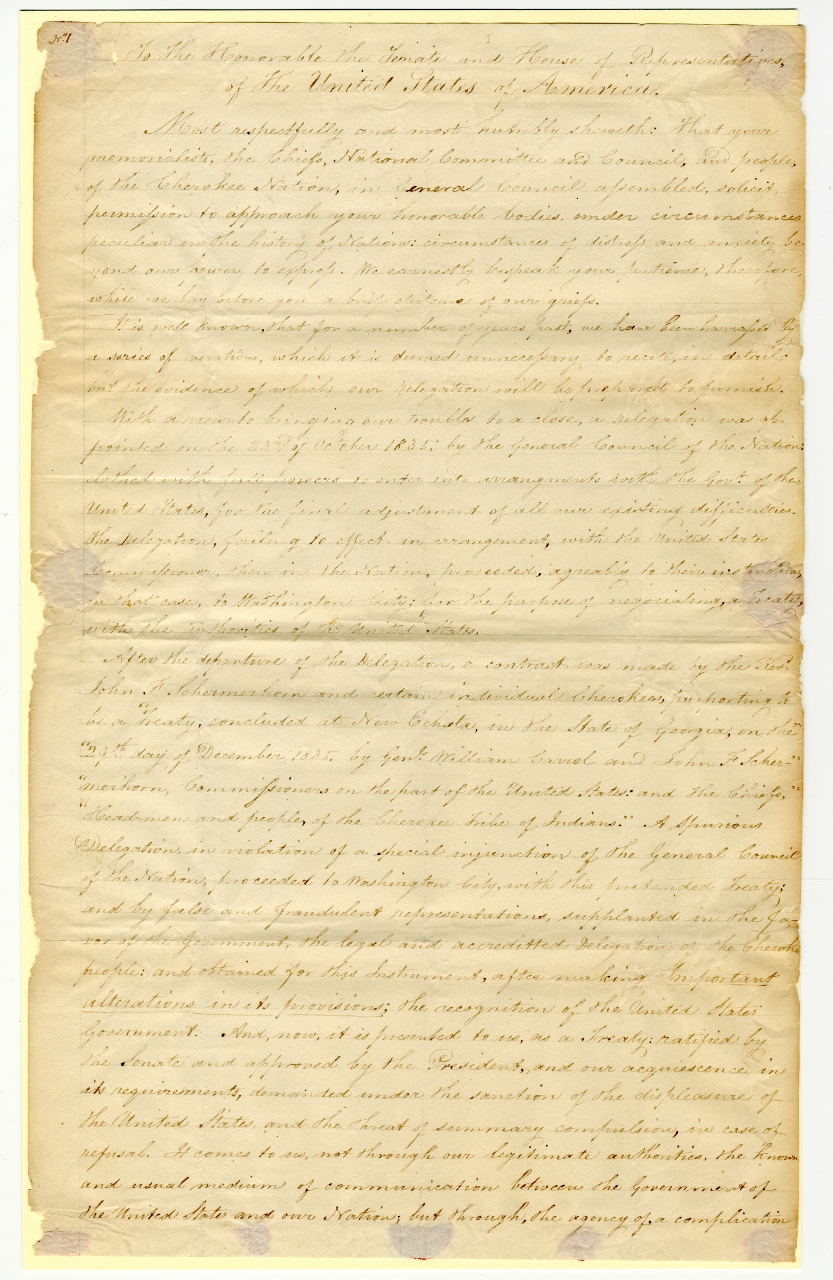 No 1
1
To the Honorable the Senate and House of Representatives,
of the United States of America.
Most respectfully and most humbly sheweth: That your
memorialists, the Chiefs, National Committee and Council, and people,
of the Cherokee Nation, in General Council assembled, solicit
permission to approach your honorable bodies, under circumstances
peculiar in the history of Nations: circumstances of distress and anxiety be-
yond our power to express. We earnestly bespeak your patience, therefore,
while we lay before you a brief epitome of our griefs.
It is well known, that for a number of years past, we have been harassed by
a series of vexations, which it is deemed unnecessary to recite, in detail:
but the evidence of which our Delegation will be prepared to furnish.
With a view to bringing our troubles to a close, a Delegation was ap-
pointed on the 23rd of October 1835, by the General Council of the Nation:
clothed with full powers to enter into arrangements with the Govt. of the
United States, for the final adjustment of all our existing difficulties.
The Delegation, failing to effect an arrangement, with the United States
Commissioner, then in the Nation, proceeded, agreably to their instructions,
in that case, to Washington City; for the purpose of negociating, a Treaty,
with the authorities of the United States.
After the departure of the Delegation, a contract was made by the Revd.
John F Schermerhorn and certain individual Cherokees, purporting to
be a "Treaty, concluded at New Echota, in the State of Georgia, on the"
"29th day of December, 1835, by Genl. William Carrol and John F Scher-"
"merhorn, Commissioners on the part of the United States: and the Chiefs,"
"Headsmen and people, of the Cherokee Tribe of Indians." A Spurious
Delegation, in violation of a special injunction of the General Council
of the Nation, proceeded to Washington City, with this pretended Treaty;
and by false and fraudulent representations, supplanted in the fa-
vor of the Government, the legal and accreditted Delegation of the Cherokee
people: and obtained for this Instrument, after making Important
alterations in its provisions; the recognition of the United States
Government. And, now, it is presented to us, as a Treaty: ratified by
the Senate and approved by the President, and our acquiescence in
its requirements, demanded under the sanction of the displeasure of
the United States, and the threat of summary compulsion, in case of
refusal. It comes to us, not through our legitimate authorities, the known
and usual medium of communication between the Government of
the United States and our Nation; but through, the agency of, a complication